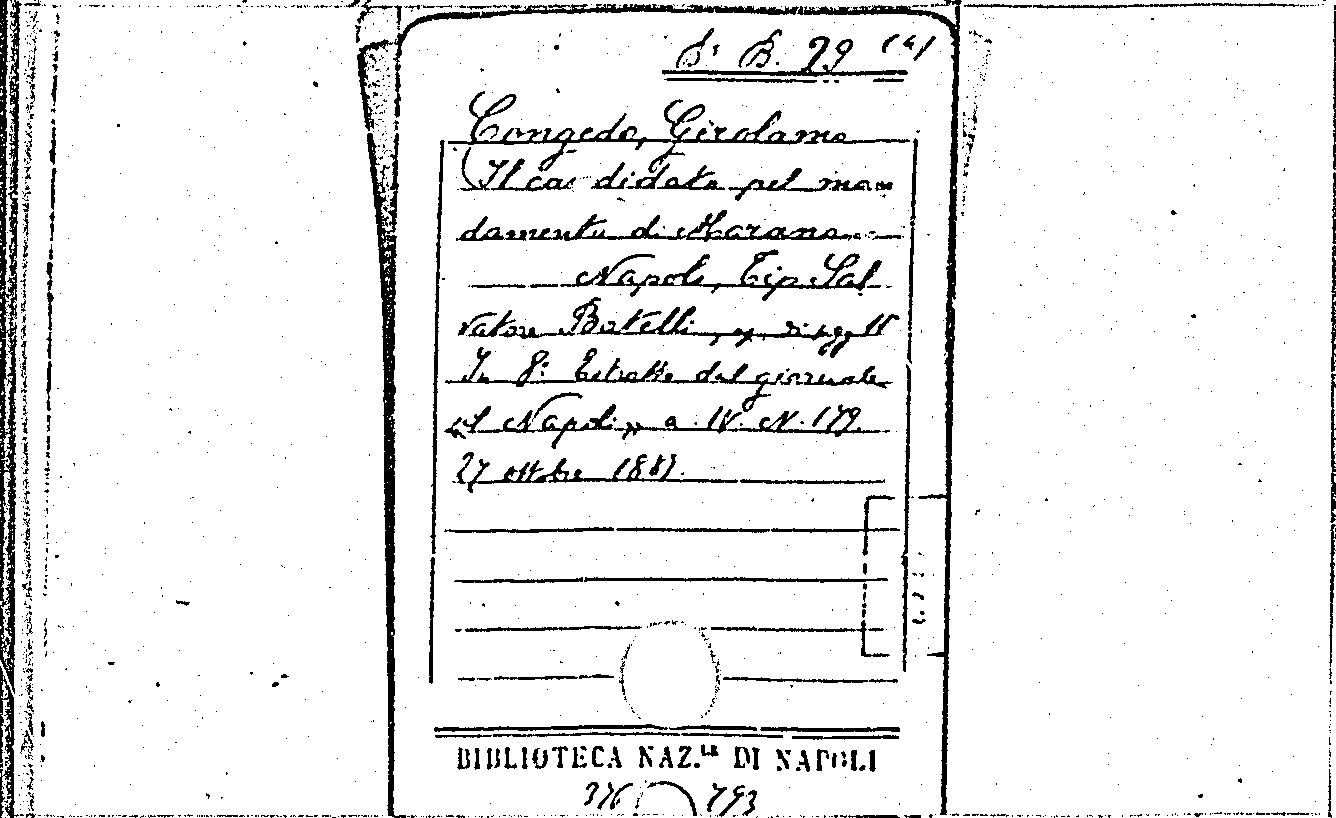 B. 29 (4)
Congedo, Girolamo
Il candidato pel man
damento di Marano
Napoli, Tip. Sal
vatore Batelli,
In 8° Estratto dal giornale
"Il Napoli" a. IV. N. 179.
27 ottobre 1883.
BIBLIOTECA NAZ.LE DI NAPOLI
376 793